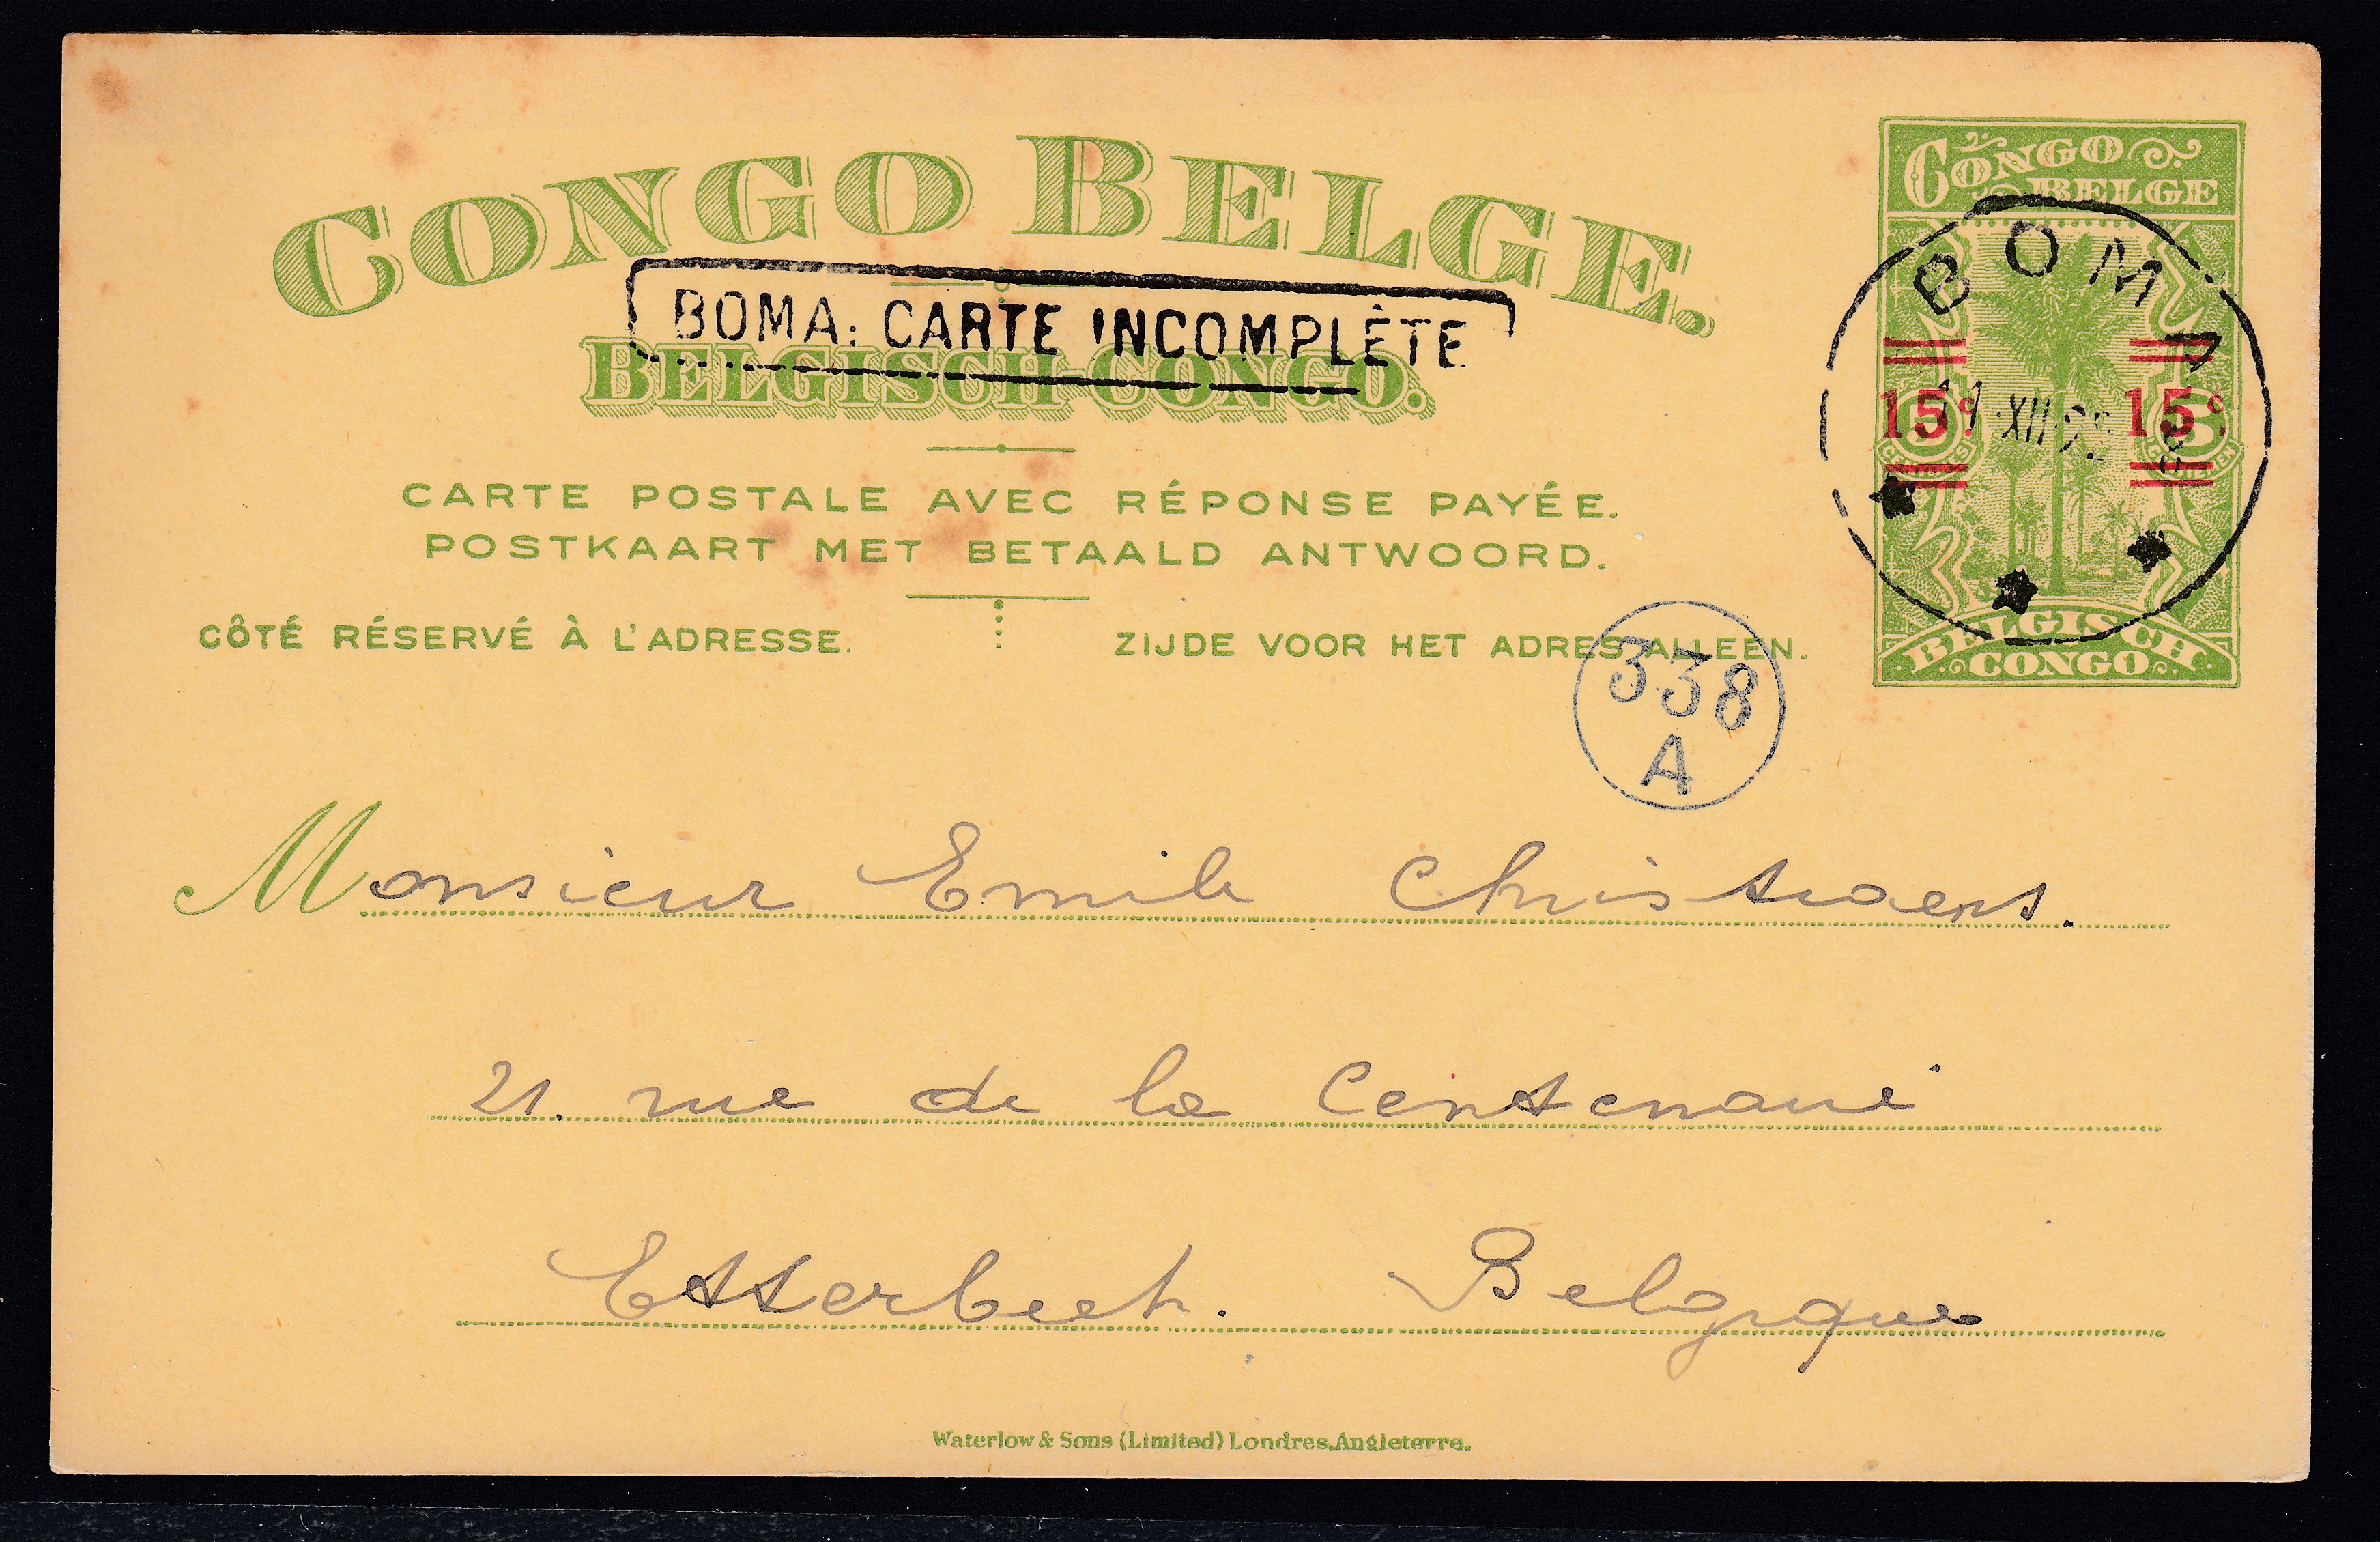 CONGO BELGE.
BOMA: CARTE INCOMPLÈTE
BELGISCH-CONGO.
CARTE POSTALE AVEC RÉPONSE PAYÉE.
POSTKAART MET BETAALD ANTWOORD.
CÔTÉ RÉSERVÉ À L'ADRESSE.
ZIJDE VOOR HET ADRES ALLEEN.
CONGO BELGE
BOMA
15c. 15c.
11 XII
BELGISCH CONGO
338
A
Monsieur Emile Christiaens.
21. rue de la Centenaire
Etterbeek. Belgique
Waterlow & Sons (Limited) Londres, Angleterre.